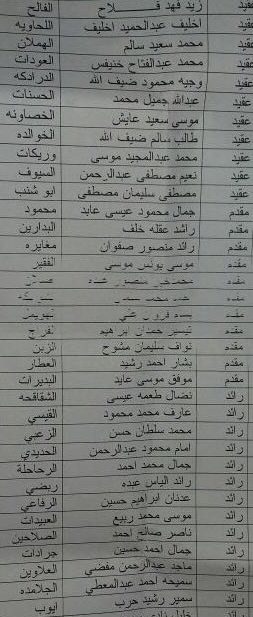 عقيد زيد فهد فلاح الفالح
عقيد اخليف عبدالحميد اخليف اللحاويه
عقيد محمد سعيد سالم الهملان
عقيد محمد عبدالفتاح خنيفس العودات
عقيد وجيه محمود ضيف الله الدرادكه
عقيد عبدالله جميل محمد الحسنات
عقيد موسى سعيد عايش الخصاونه
عقيد طالب سالم ضيف الله الخوالده
عقيد محمد عبدالمجيد موسى وريكات
عقيد نعيم مصطفى عبدالرحمن السيوف
عقيد مصطفى سليمان مصطفى ابو شنب
مقدم جمال محمود عيسى عايد محمود
مقدم راشد عقله خلف البدارين
مقدم رائد منصور صفوان مغايره
مقدم موسى يونس موسى الفقير
مقدم منصور
مقدم محمد
مقدم
مقدم تيسير حمدان ابراهيم الفرج
مقدم نواف سليمان مشوح الزبن
مقدم بشار احمد رشيد العطار
مقدم موفق موسى عايد البديرات
رائد نضال طعمه عيسى الشقاقحه
رائد عارف محمد محمود القيسي
رائد محمد سلطان حسن الزعبي
رائد امام محمود عبدالرحمن الحديدي
رائد جمال محمد احمد الرحاحلة
رائد رائد الياس عبده ربضي
رائد عدنان ابراهيم حسين الرفاعي
رائد موسى محمد ربيع العبيدات
رائد ناصر صالح احمد الصلاحين
رائد جمال احمد حسين جرادات
رائد ماجد عبدالرحمن مفضي العلاوين
رائد سميحه احمد عبدالمعطي الجلامده
رائد سمير رشيد حرب ايوب
رائد